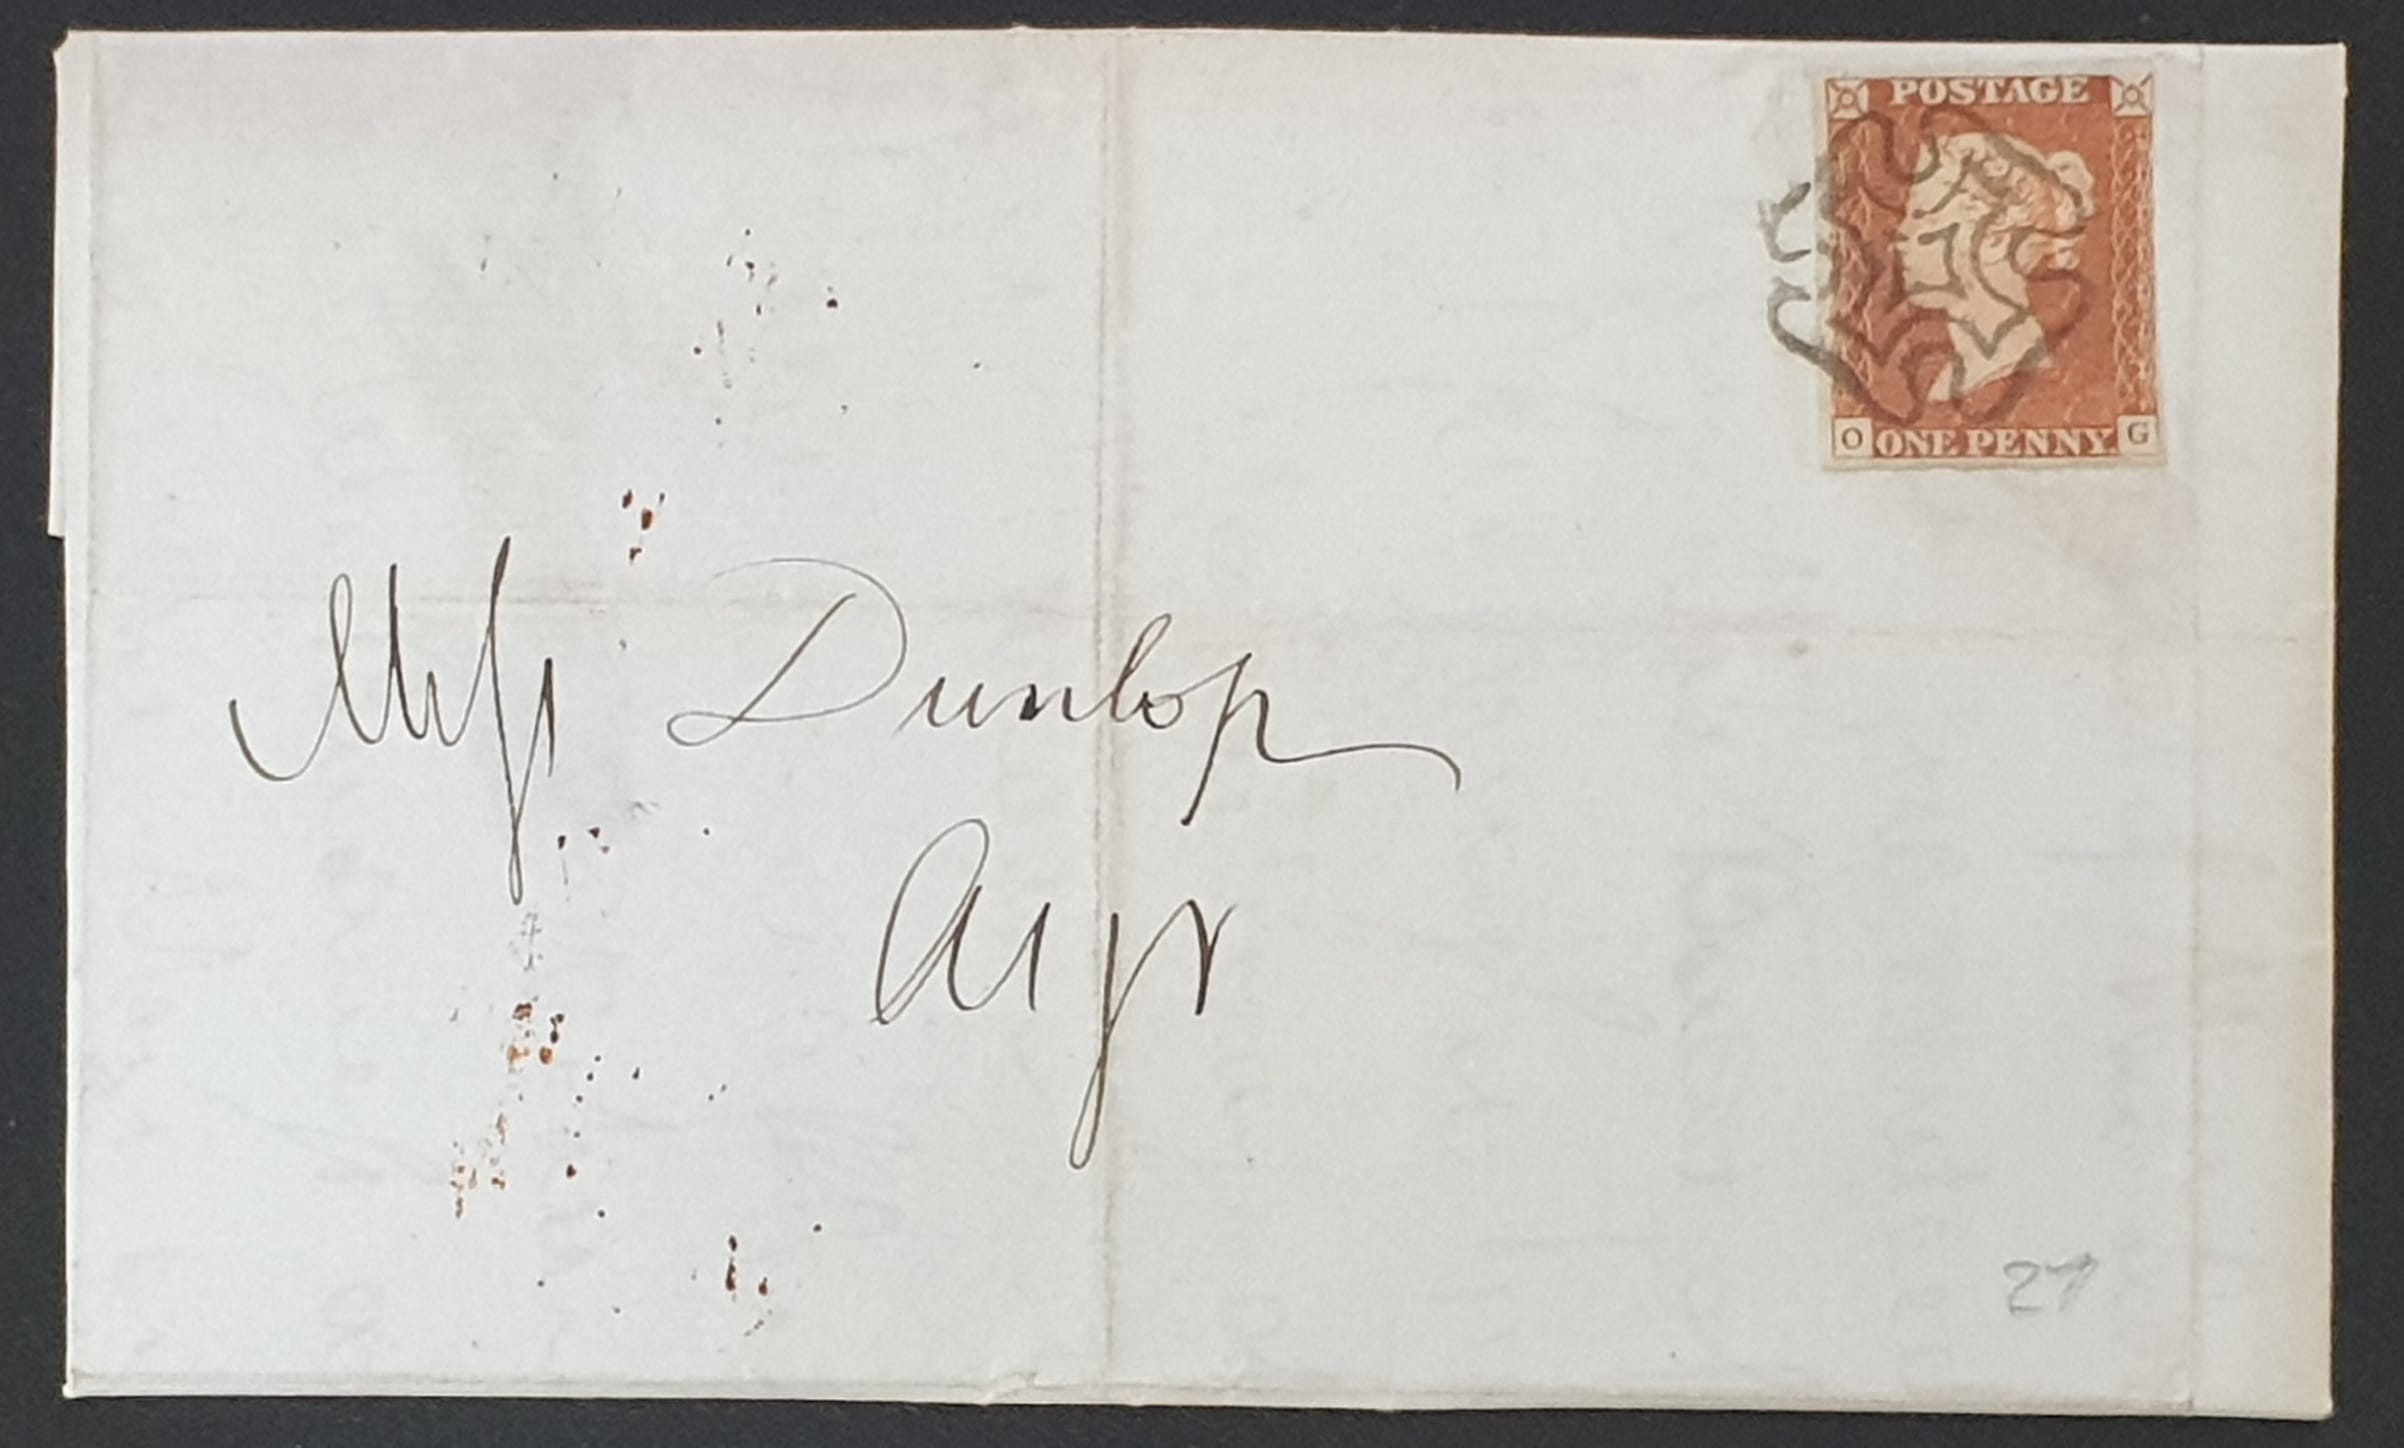 POSTAGE
O ONE PENNY. G
Miſs Dunlop
Ayr
27